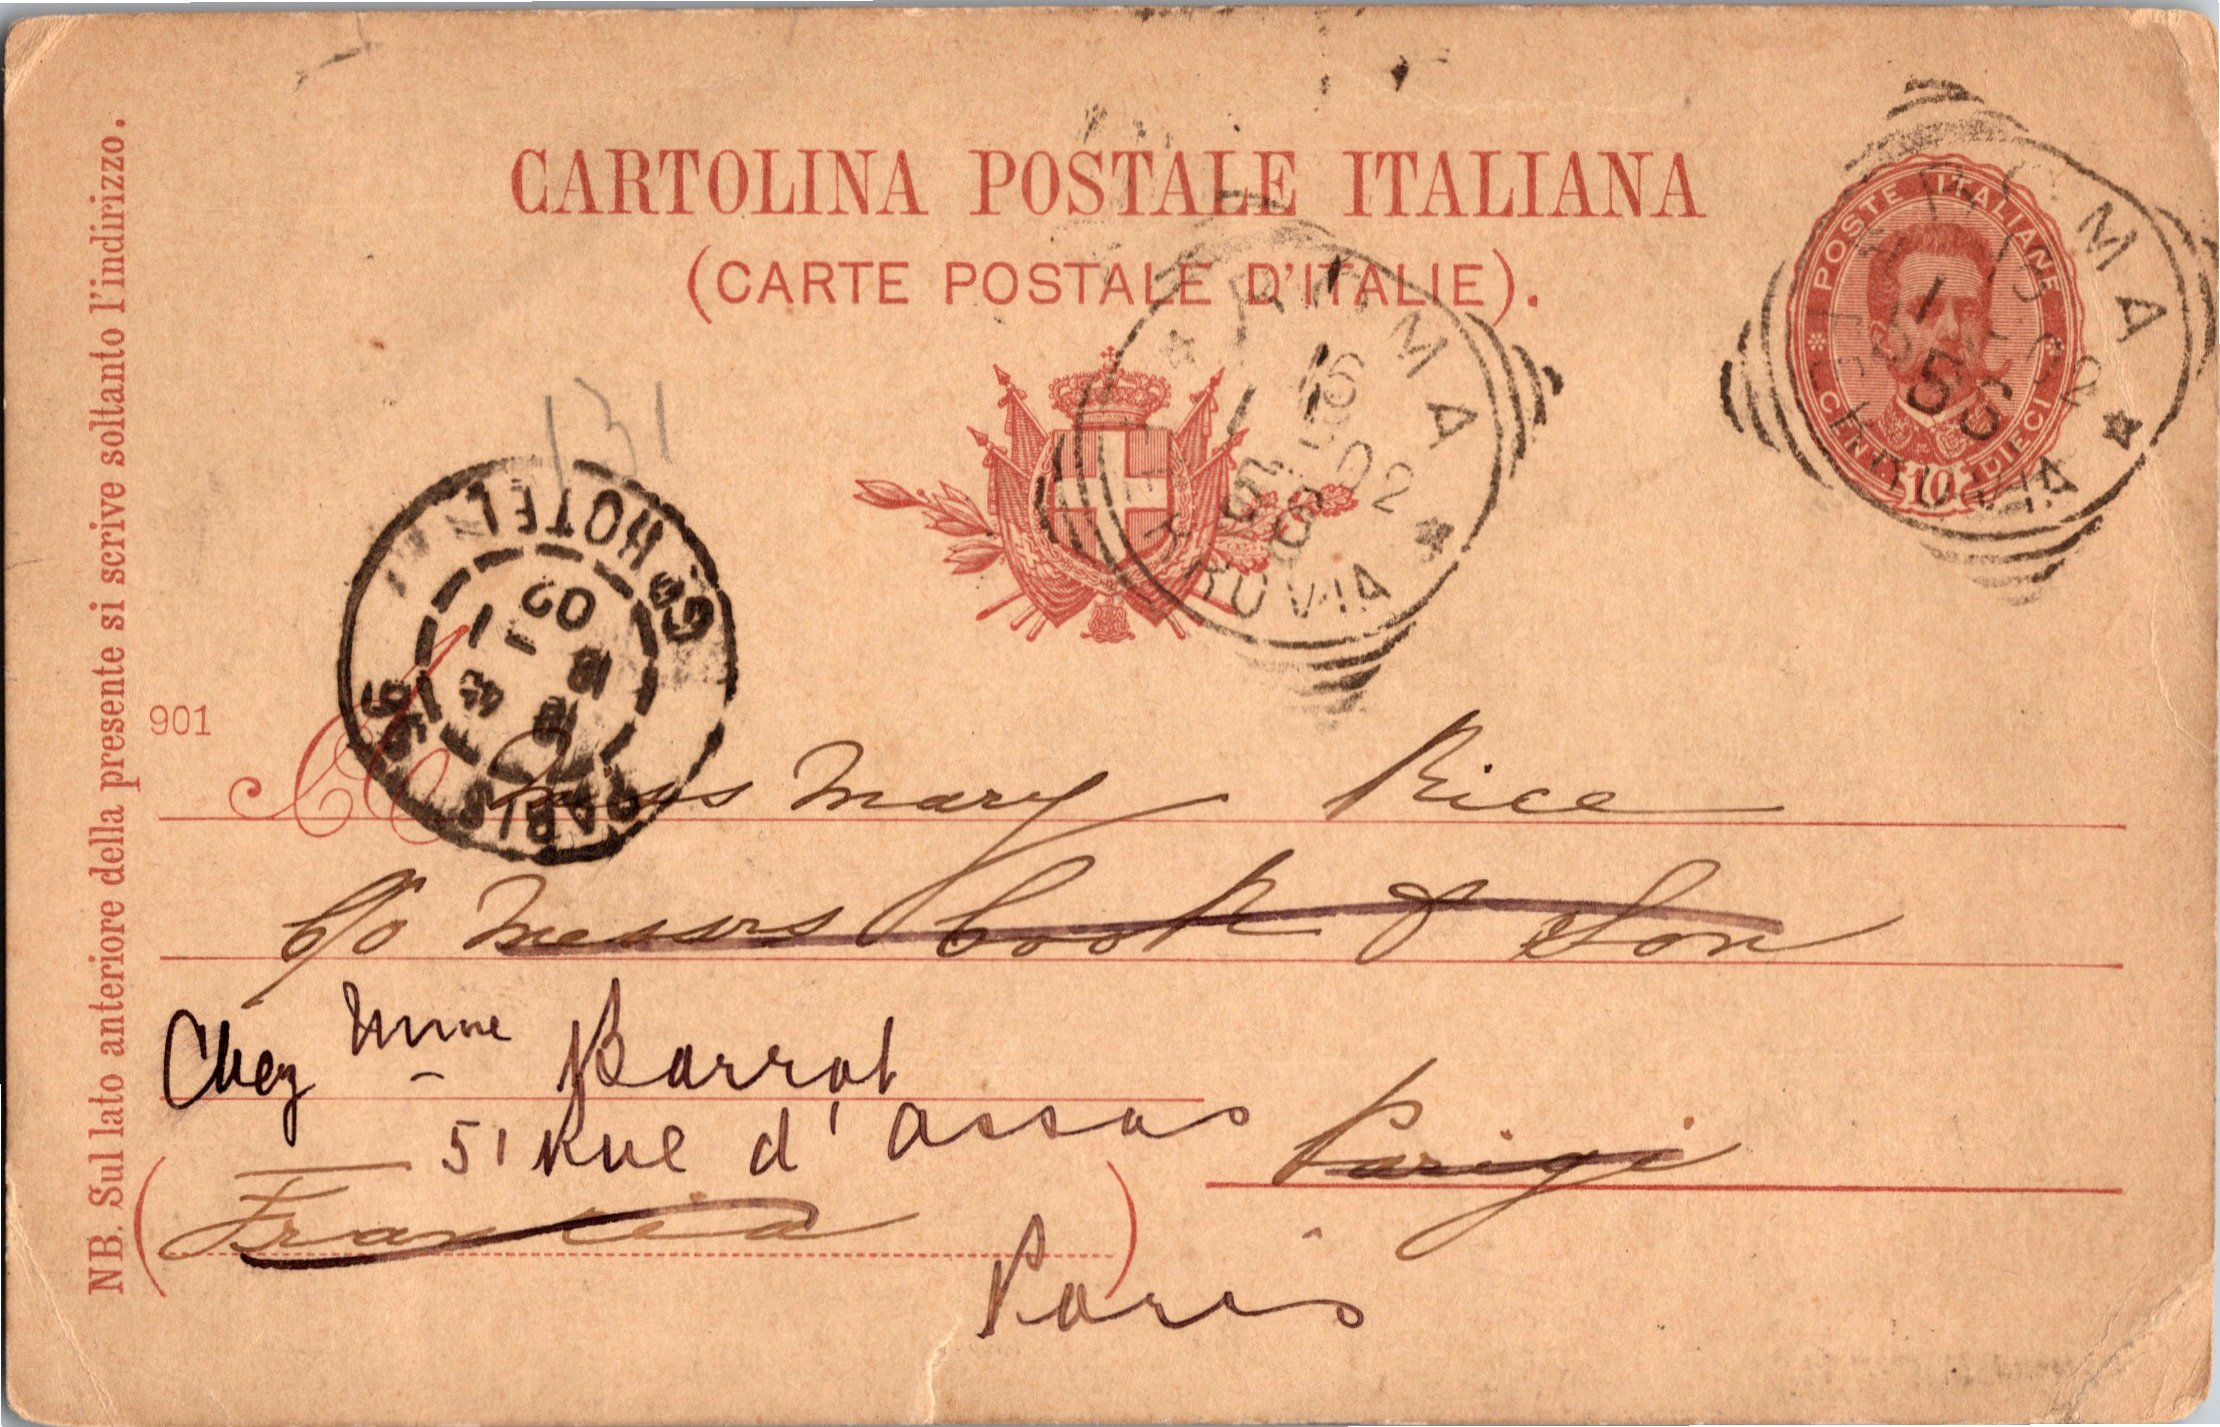 CARTOLINA POSTALE ITALIANA
(CARTE POSTALE D'ITALIE).
POSTE ITALIANE
CENT. DIECI
10
ROMA
FERROVIA
16
1 02
5 S
ROMA
FERROVIA
16
1 02
5 S
131
PARIS
HOTEL
18
1
02
901
NB. Sul lato anteriore della presente si scrive soltanto l'indirizzo.
A
Miss Mary Rice
C/o Messrs Cook & Son
Chez Mme Barrat
51 Rue d'Assas
Parigi
(Francia)
Paris